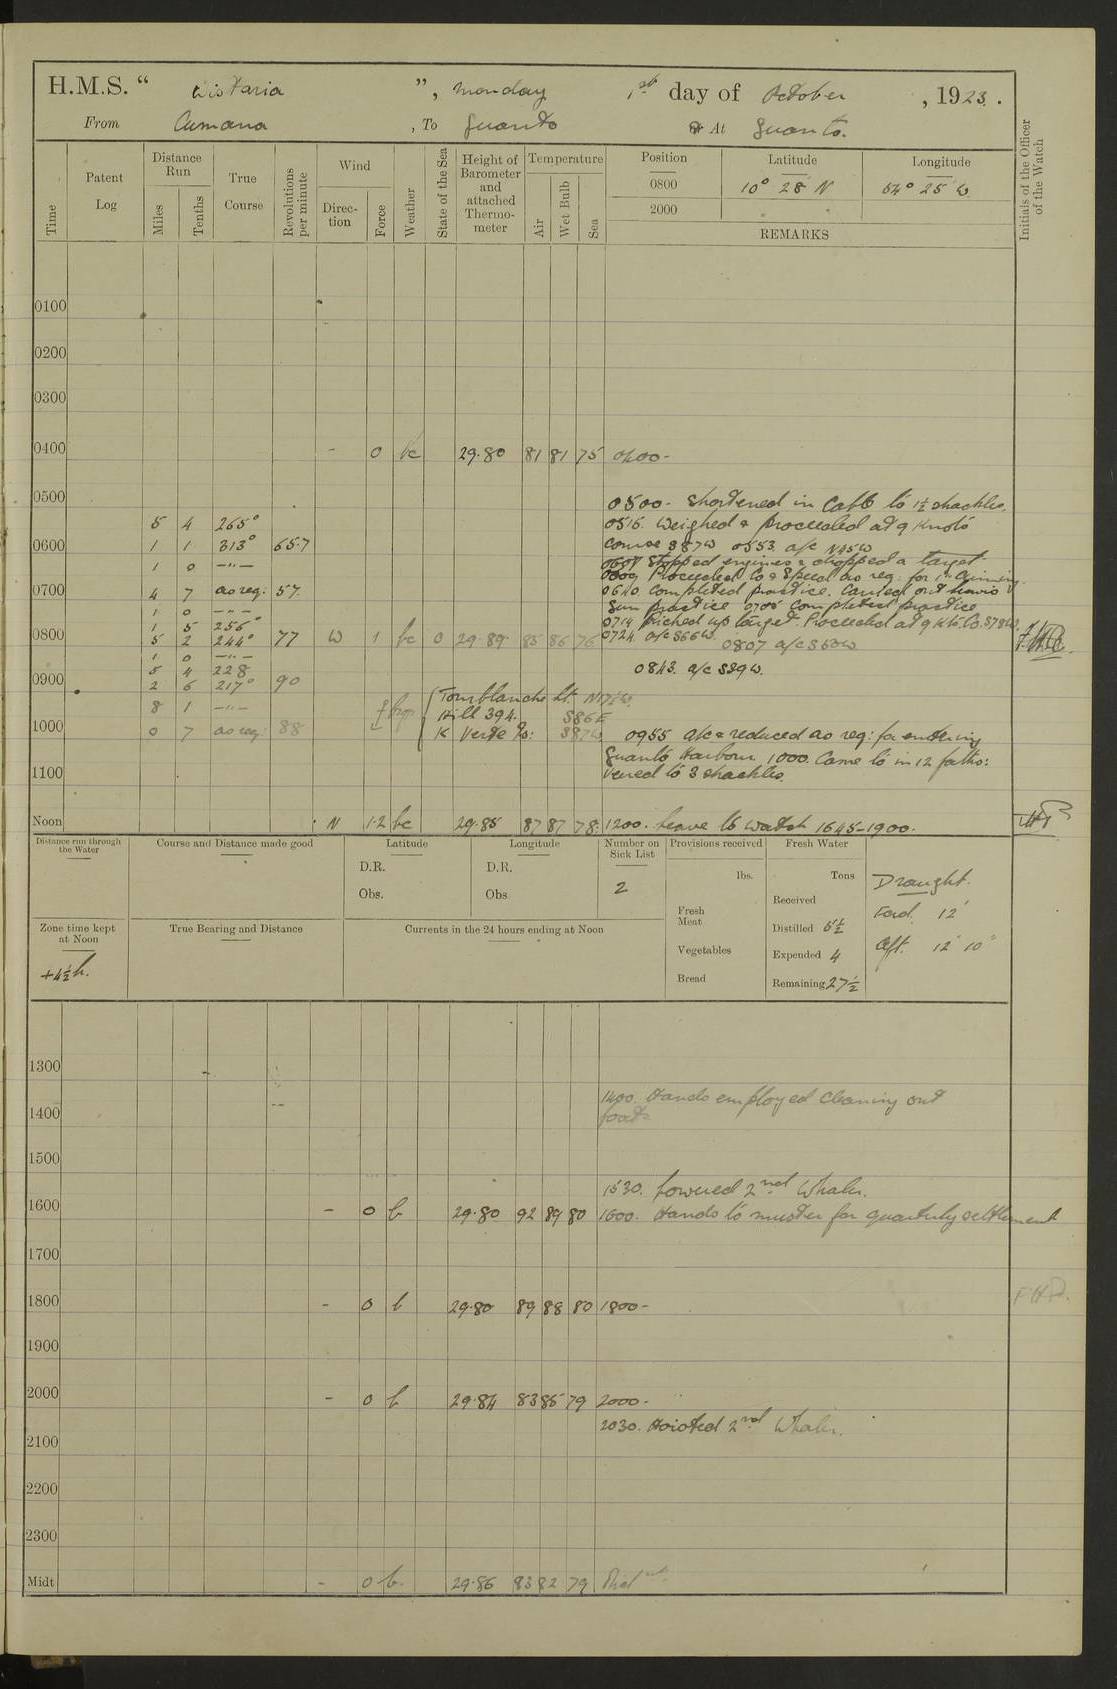 H.M.S. “ Wistaria ”, Monday 1st day of October , 1923 .
From Cumana , To Guanta At Guanta.
Time
Patent Log
Distance Run
Miles
Tenths
True Course
Revolutions per minute
Wind
Direction
Force
Weather
State of the Sea
Height of Barometer and attached Thermometer
Temperature
Air
Wet Bulb
Sea
Position
Latitude
Longitude
0800 10° 28' N 64° 25' W
2000
REMARKS
Initials of the Officer of the Watch
0100
0200
0300
0400 - 0 bc 29.80 81 81 75 0400-
0500
0500. Shortened in Cable to 1½ shackles.
5 4 265° 0515. Weighed & proceeded at 9 knots
0600 1 1 313° 65.7 course S87W 0553. a/c N45W
1 0 —"— Stopped engines & dropped a target
0609 Proceeded Co & Speed as req. for 1" aiming
0700 4 7 as req. 57. 0640. Completed practice. Carried out
1 0 —"— Gun practice 0705 Completed practice
1 5 256° 0714 Picked up target. Proceeded at 9 kts. Co. S78W.
0800 5 2 244° 77 W 1 bc 0 29.89 85 86 76 0724 a/c S66W. 0807 a/c S50W
1 0 —"—
5 4 228 0843. a/c S39W.
0900 2 6 217° 90
8 1 —"— Hill 394. S86E
1000 0 7 as req: 88 K Verde Pt: S87W 0955 a/c & reduced as req: for entering
Guanta Harbour. 1000. Came to in 12 faths:
1100 Veered to 3 shackles.
Noon N 1.2 bc 29.85 87 87 78. 1200. Leave to watch 1645-1900.
Distance run through the Water
Course and Distance made good
Latitude
D.R.
Obs.
Longitude
D.R.
Obs.
Number on Sick List
2
Provisions received
lbs.
Fresh Meat
Vegetables
Bread
Fresh Water
Tons
Received
Distilled 5½
Expended 4
Remaining 27½
Draught.
Ford. 12'
Aft. 12' 10"
Zone time kept at Noon
+4½h.
True Bearing and Distance
Currents in the 24 hours ending at Noon
1300
1400 1400. Hands employed cleaning out
boats
1500
1530. Lowered 2nd Whaler.
1600 - 0 b 29.80 92 89 80 1600. Hands to muster for quarterly settlement
1700
1800 - 0 b 29.80 89 88 80 1800-
1900
2000 - 0 b 29.84 83 85 79 2000-
2030. Hoisted 2nd Whaler.
2100
2200
2300
Midt - 0 b. 29.86 83 82 79 Midnt.